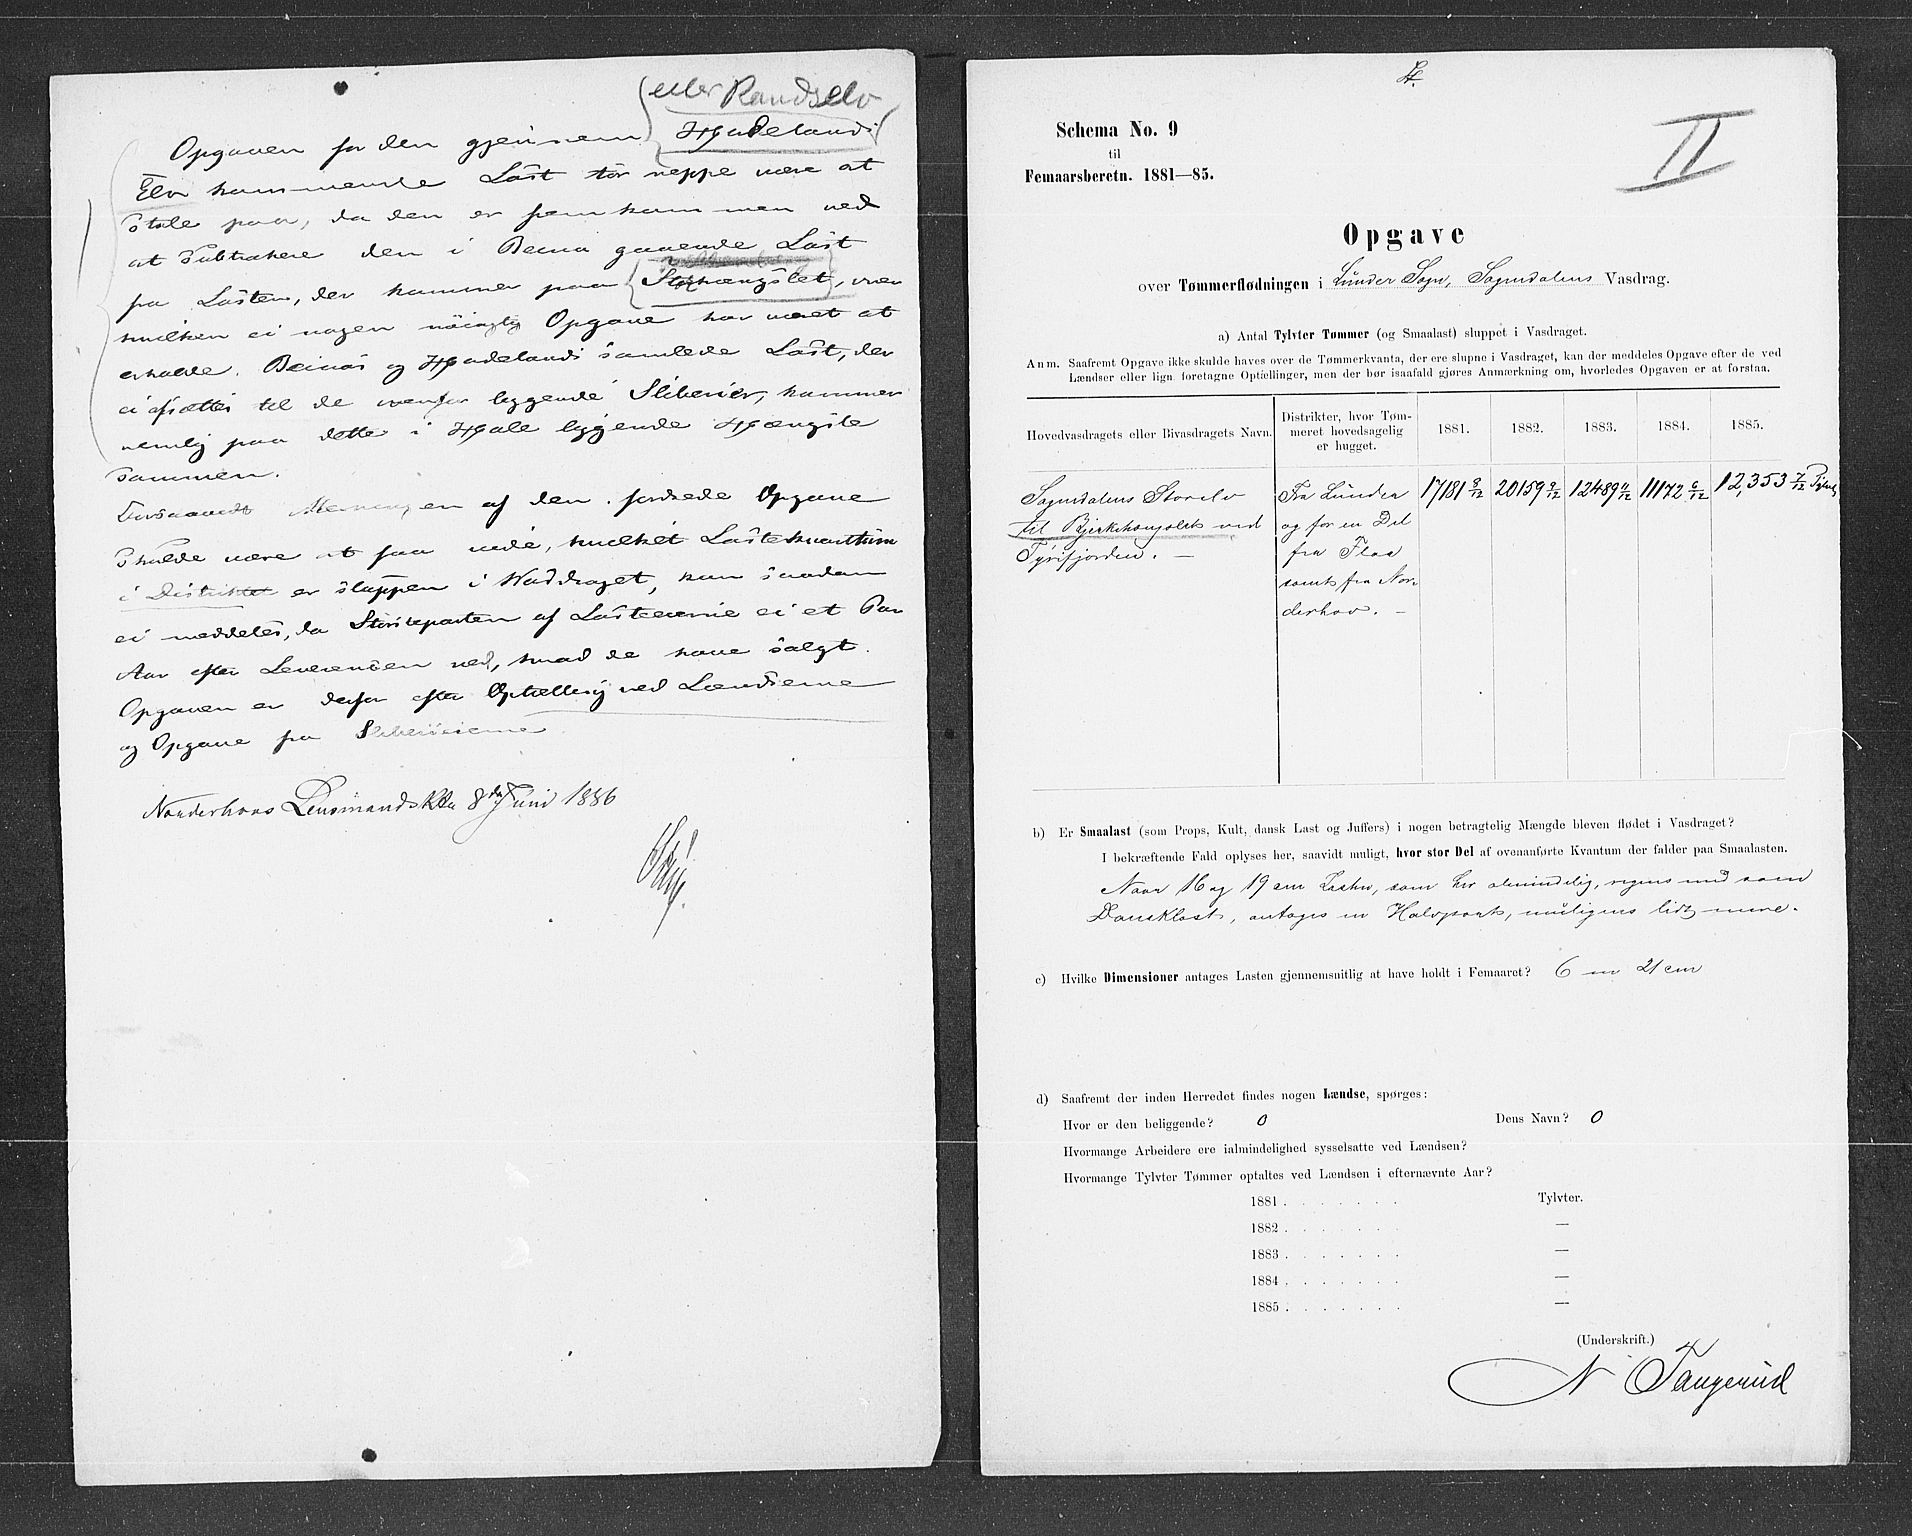 eller Randselv
Opgaven for den gjennem Hadelands
Elv kommende Last tør neppe være at
stole paa, da den er fremkommen ved
at subtrahere den i Beina gaaende Last
fra Lasten, der kommer paa Storhængslet, over
hvilken ei nogen nøiagtig Opgave har været at
erholde. Beinas og Hadelands samlede Last, der
ei afsættes til de ovenfor liggende Sliberier, kommer
nemlig paa dette i Hole liggende Hængsle
sammen.
Forsaavidt Meningen af den fordrede Opgave
skulde være at faa vide, hvilket Lastekvantum
i Distriktet er sluppen i Vasdraget, kan saadan
ei meddeles, da Størsteparten af Lasteierne ei et Par
Aar efter Leverensen ved, hvad de have solgt.
Opgaven er derfor efter Optælling ved Lændserne
og Opgave fra Sliberierne
Norderhovs Lensmandsktr 8de Juni 1886
Schema No. 9
til
Femaarsberetn. 1881—85.
II
Opgave
over Tømmerflødningen i Lunder Sogn, Sognedalens Vasdrag.
a) Antal Tylvter Tømmer (og Smaalast) sluppet i Vasdraget.
Anm. Saafremt Opgave ikke skulde haves over de Tømmerkvanta, der ere slupne i Vasdraget, kan der meddeles Opgave efter de ved
Lændser eller lign. foretagne Optællinger, men der bør isaafald gjøres Anmærkning om, hvorledes Opgaven er at forstaa.
Hovedvasdragets eller Bivasdragets Navn.
Distrikter, hvor Tøm-
meret hovedsagelig
er hugget.
1881. 1882. 1883. 1884. 1885.
Sogndalens Storelv
til Bjerkehangslets ved
Tyrifjorden. —
Fra Lunder
og for en Del
fra Flaa
samt fra Nor-
derhov. —
17181 8/12 20159 9/12 12489 11/12 11172 6/12 12,353 7/12 Tylvt
b) Er Smaalast (som Props, Kult, dansk Last og Juffers) i nogen betragtelig Mængde bleven flødet i Vasdraget?
I bekræftende Fald oplyses her, saavidt muligt, hvor stor Del af ovenanførte Kvantum der falder paa Smaalasten.
Naar 16 og 19 cm Last, som her almindelig, regnes med som
Dansklast, antages en Halvpart, muligens lidt mere.
c) Hvilke Dimensioner antages Lasten gjennemsnitlig at have holdt i Femaaret? 6 m 21 cm
d) Saafremt der inden Herredet findes nogen Lændse, spørges:
Hvor er den beliggende? 0 Dens Navn? 0
Hvormange Arbeidere ere ialmindelighed sysselsatte ved Lændsen?
Hvormange Tylvter Tømmer optaltes ved Lændsen i efternævnte Aar?
1881 . . . . . . . Tylvter.
1882 . . . . . . . —
1883 . . . . . . . —
1884 . . . . . . . —
1885 . . . . . . . —
(Underskrift.)
N Tangerud